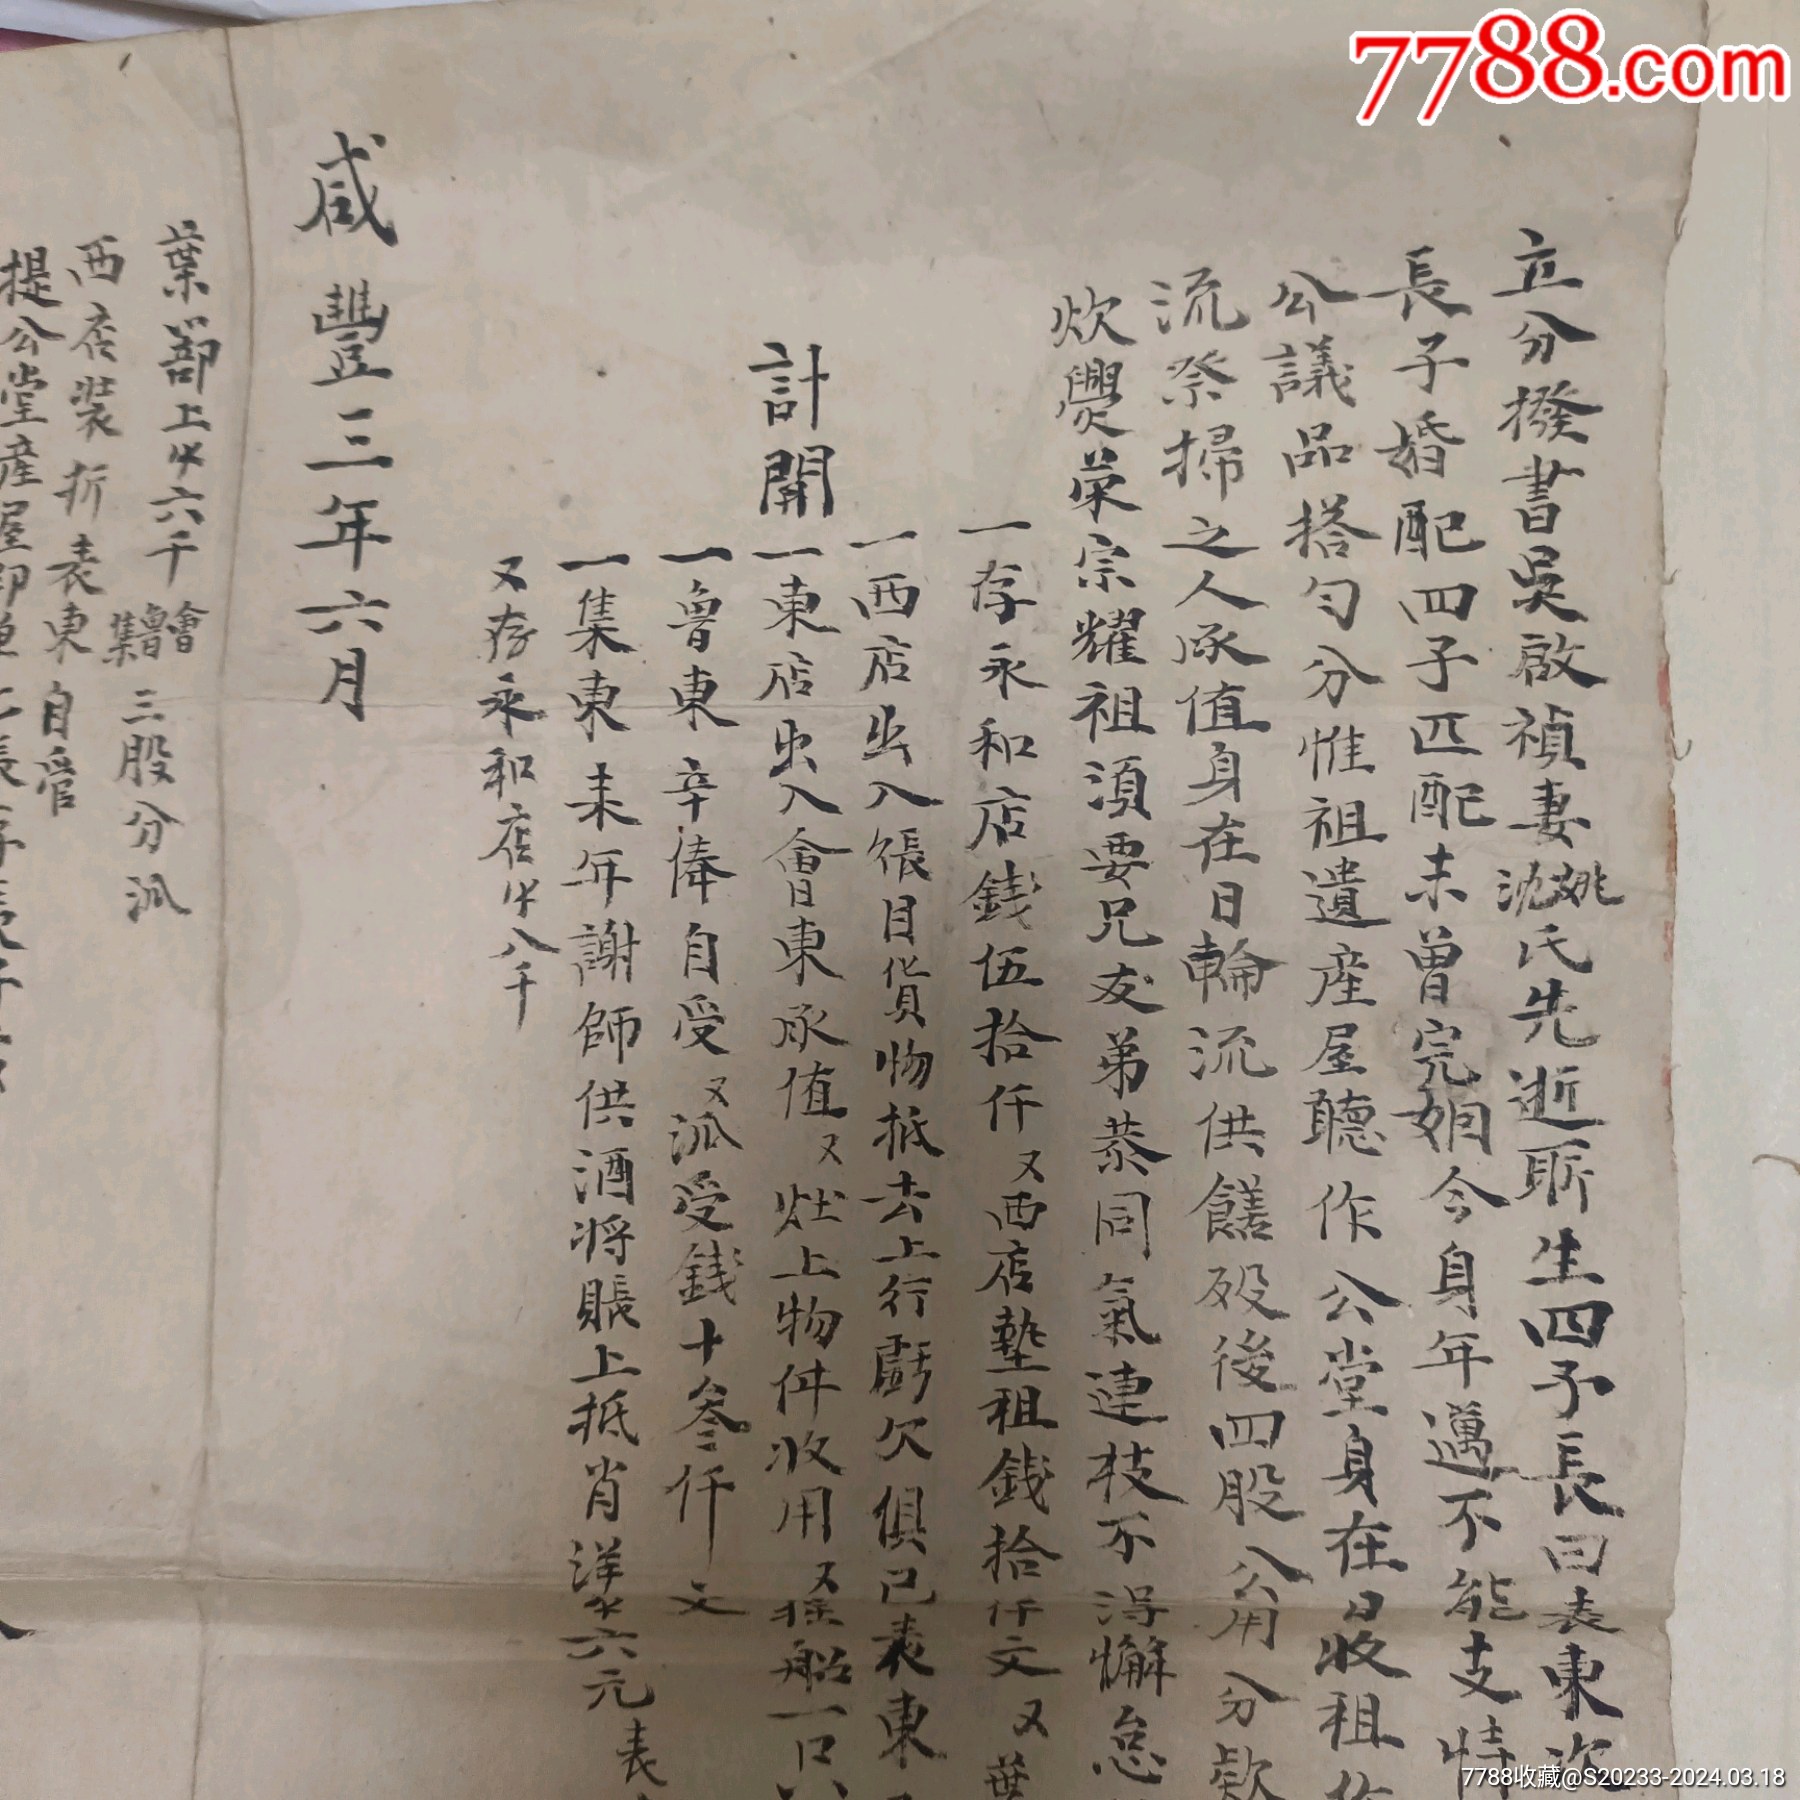 7788.com
立分撥書吳啟禎妻姚沈氏先逝所生四子長曰表東次
長子婚配四子匹配未曾完姻今身年邁不能支持
公議品搭勻分惟祖遺產屋聽作公堂身在日收租作
流祭掃之人承值身在日輪流供饍殁後四股公用分歉
炊爨榮宗耀祖須要兄友弟恭同氣連枝不得懈怠
一存永和店錢伍拾仟又西店墊租錢拾仟文又葉
一西店出入張目貨物抵去上行虧欠俱已表東
計開
一東店出入會東承值又灶上物件收用又搖船一只
一魯東辛俸自受又派受錢十叁仟文
一集東未年謝師供酒將賬上抵肖洋六元表
又存永和店八千
咸豐三年六月
葉蔀上六千會魯集三股分派
西店裝折表東自管
提公堂產屋
7788收藏@S20233-2024.03.18